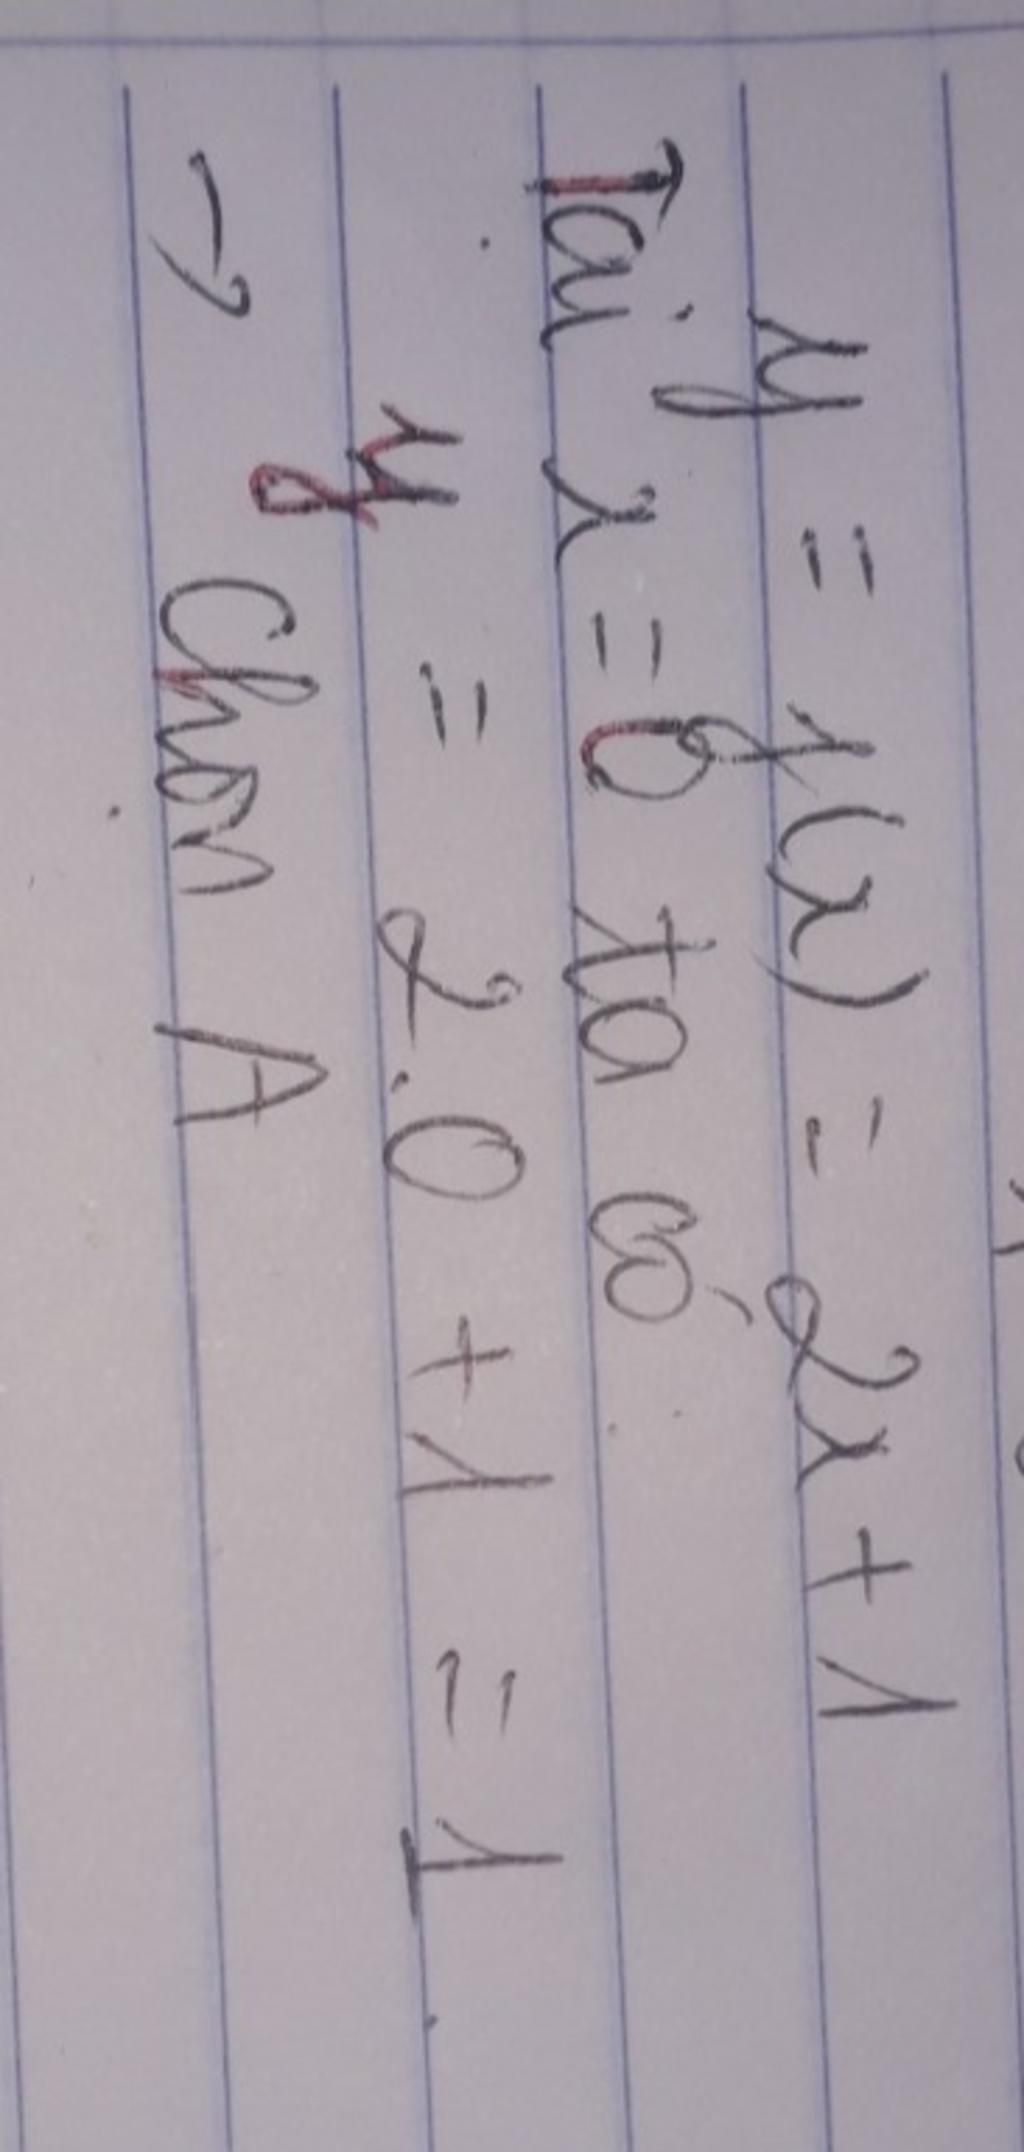 y = f(x) = 2x + 1
Tại x = 0 ta có
y = 2.0 + 1 = 1
→ Chọn A